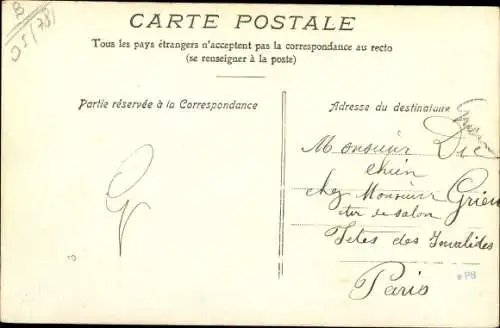 CARTE POSTALE
Tous les pays étrangers n'acceptent pas la correspondance au recto
(se renseigner à la poste)
Partie réservée à la Correspondance
Adresse du destinataire
Monsieur Dic
chien
chez Monsieur Grien
de salon
Fetes des Invalides
Paris
PB